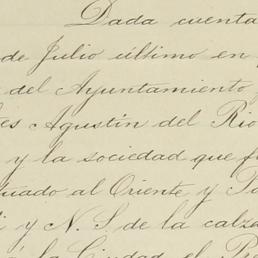 Dada cuenta
de Julio último en
del Ayuntamiento
es Agustin del Rio
y la sociedad que
tuado al Oriente y
y N. S. de la calza
la Ciudad el